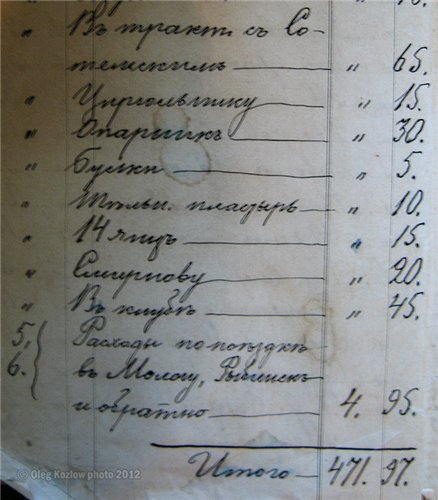 " Въ тракт. съ Со-
телискимъ — " 65.
" Цирюльнику — " 15.
" Опарышъ — " 30.
" Булки — " 5.
" пластырь — " 10.
" 14 яицъ — " 15.
" Смирнову — " 20.
" Въ клубѣ — " 45.
5, Расходы по поѣздкѣ
6. въ Мологу, Рыбинскъ
и обратно — 4. 95.
Итого — 471. 97.
© Oleg Kozlow photo 2012